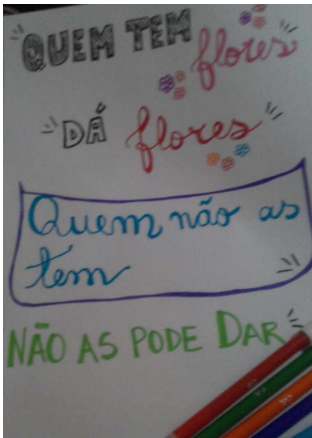 QUEM TEM flores
DÁ flores
Quem não as
tem
NÃO AS PODE DAR